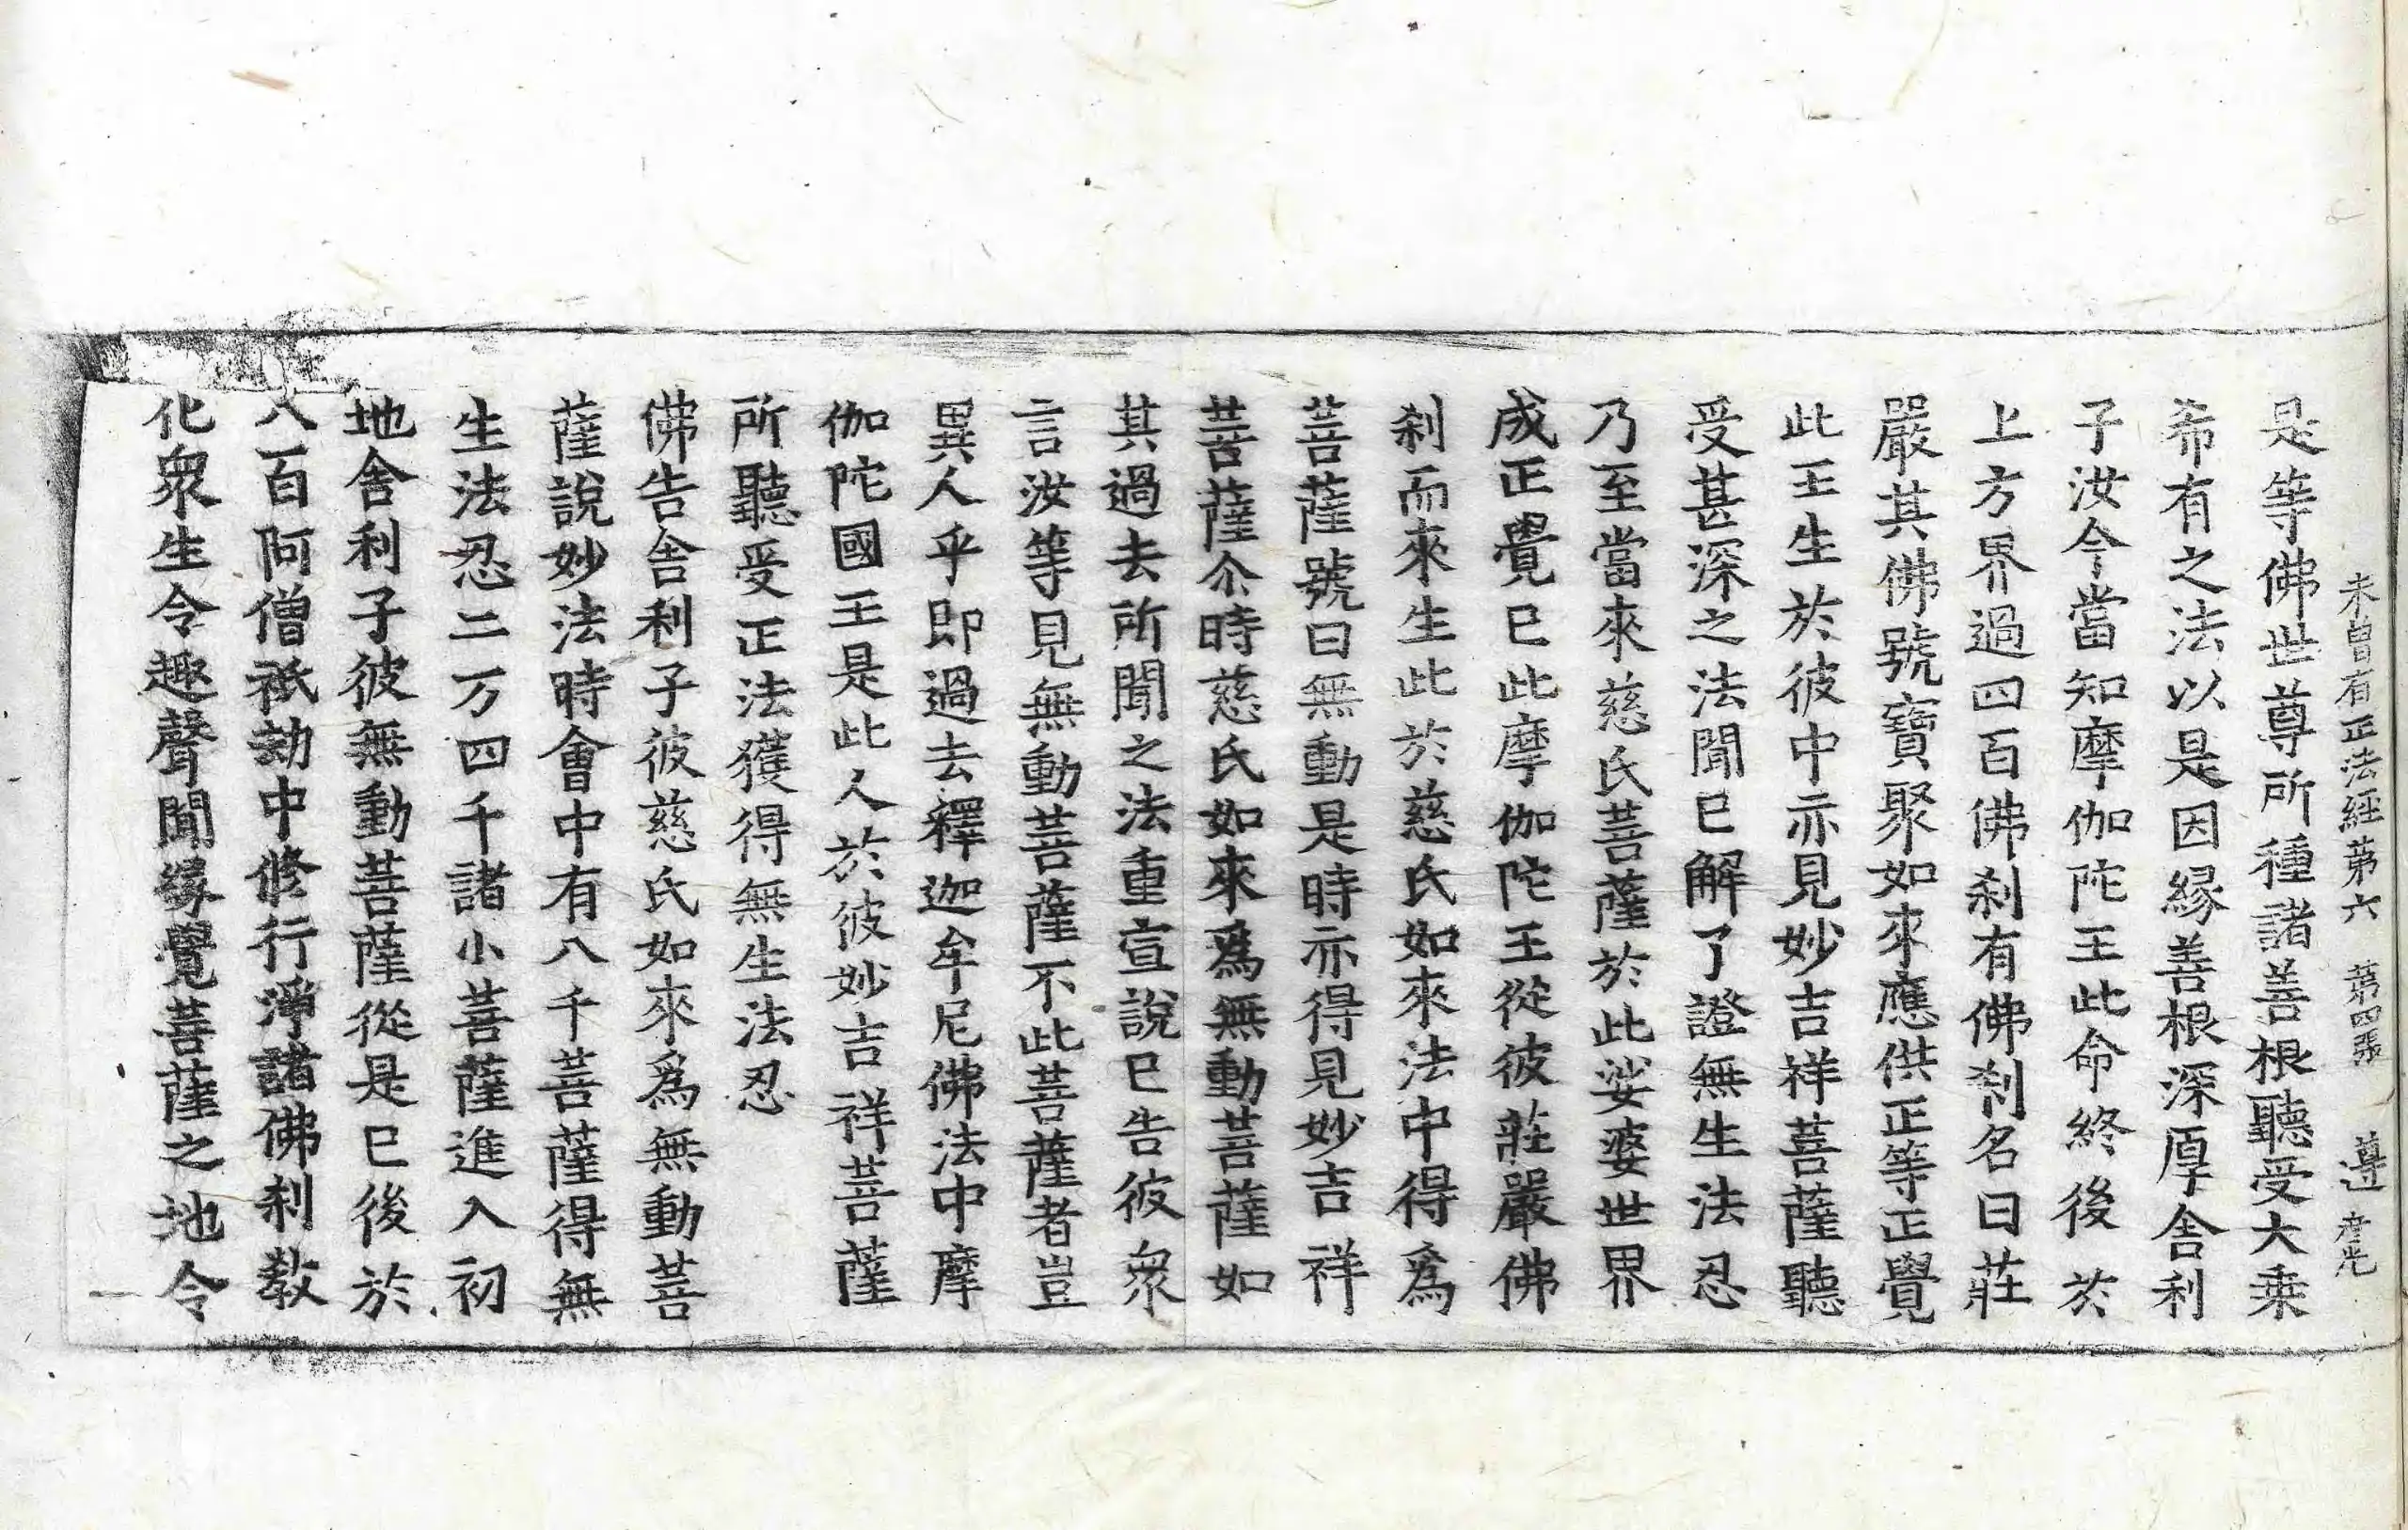 未曾有正法經第六 第四張 遵 彦光
是等佛世尊所種諸善根聽受大乗
希有之法以是因緣善根深厚舍利
子汝今當知摩伽陀王此命終後於
上方界過四百佛刹有佛刹名曰莊
嚴其佛號寶聚如來應供正等正覺
此王生於彼中亦見妙吉祥菩薩聽
受甚深之法聞已解了證無生法忍
乃至當來慈氏菩薩於此娑婆世界
成正覺已此摩伽陀王從彼莊嚴佛
刹而來生此於慈氏如來法中得爲
菩薩號曰無動是時亦得見妙吉祥
菩薩尒時慈氏如來爲無動菩薩如
其過去所聞之法重宣說已告彼衆
言汝等見無動菩薩不此菩薩者豈
異人乎即過去釋迦牟尼佛法中摩
伽陀國王是此人於彼妙吉祥菩薩
所聽受正法獲得無生法忍
佛告舍利子彼慈氏如來爲無動菩
薩說妙法時會中有八千菩薩得無
生法忍二万四千諸小菩薩進入初
地舍利子彼無動菩薩從是已後於
八百阿僧祇劫中修行淨諸佛刹敎
化衆生令趣聲聞緣覺菩薩之地令